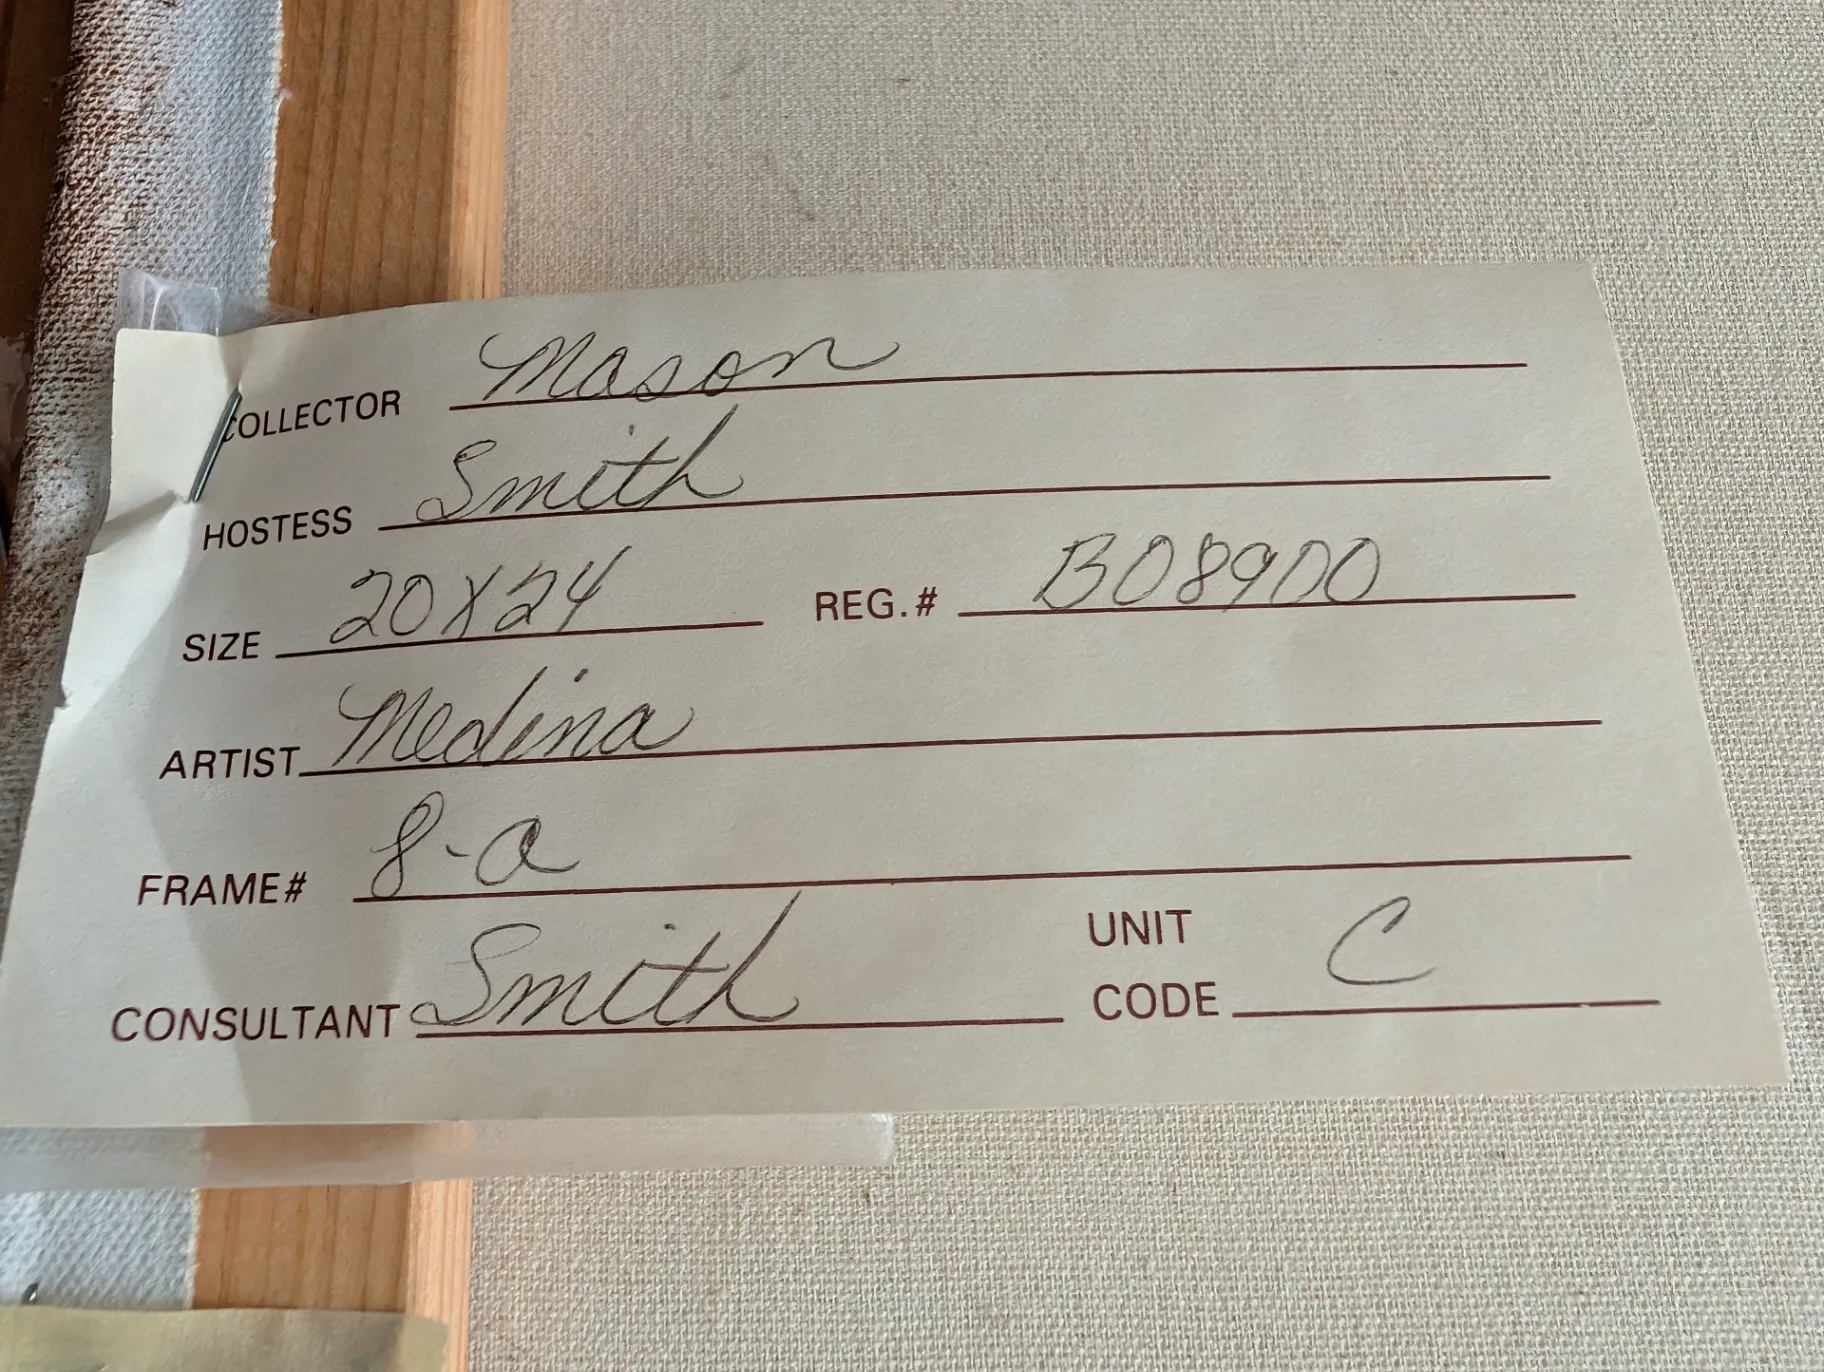 COLLECTOR Mason
HOSTESS Smith
SIZE 20X24 REG.# B08900
ARTIST Medina
FRAME# 8-a
CONSULTANT Smith UNIT CODE C